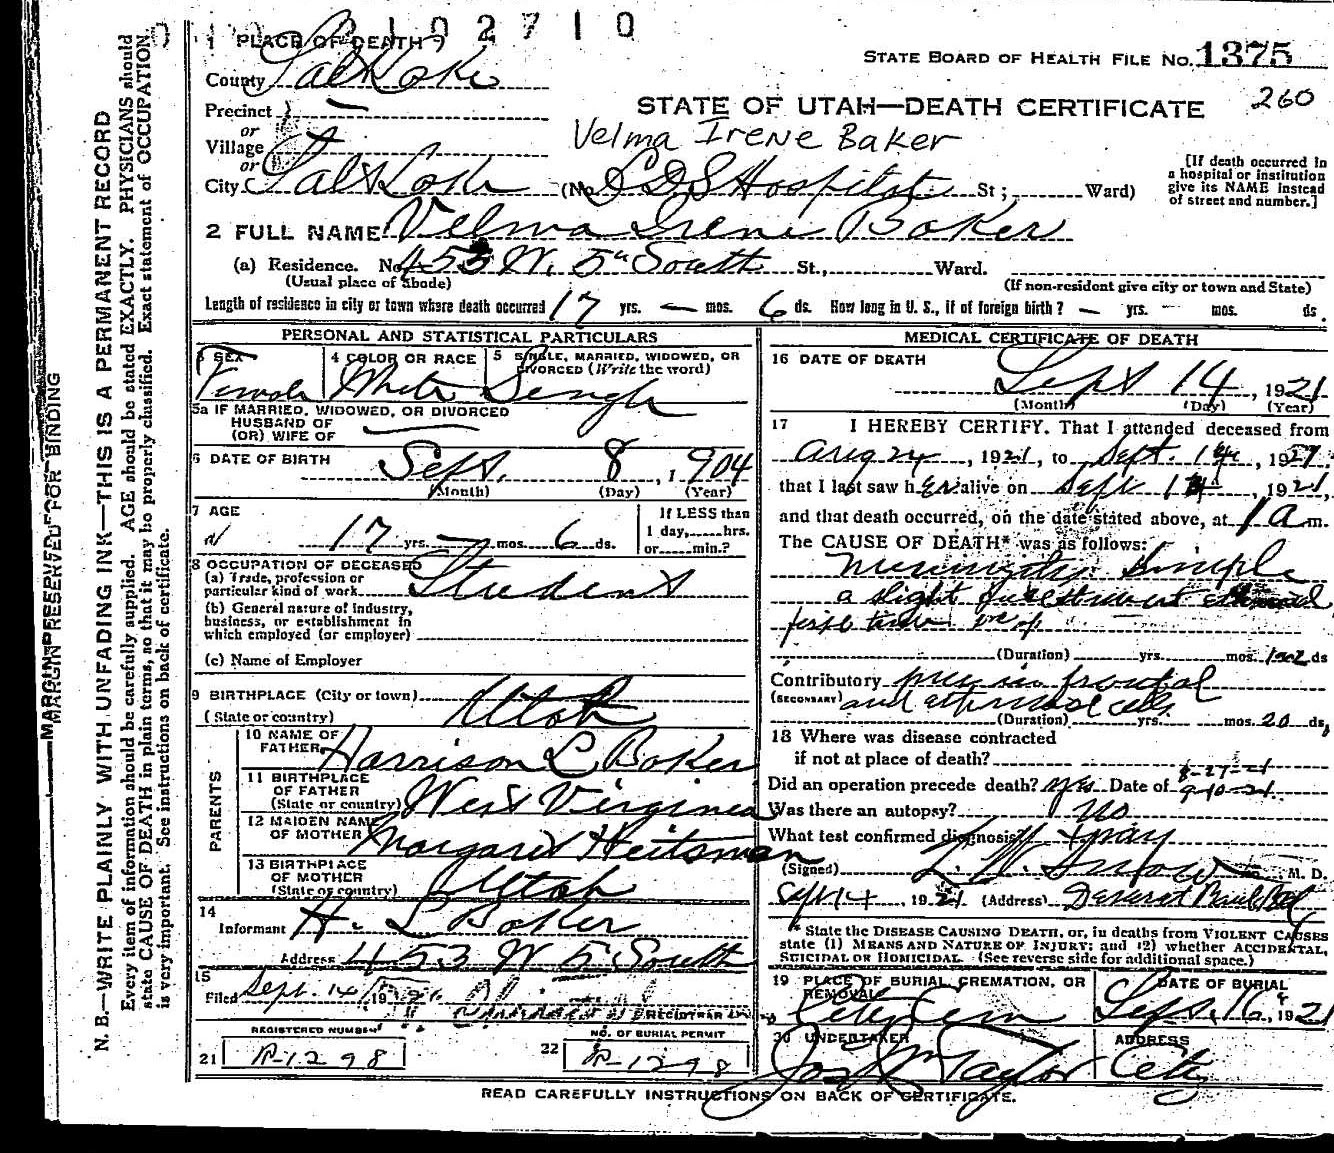 0 2 1 0 2 7 1 0
1 PLACE OF DEATH
STATE BOARD OF HEALTH FILE No. 1375
County Salt Lake
Precinct —
STATE OF UTAH—DEATH CERTIFICATE 260
or
Village
Velma Irene Baker
or
City Salt Lake (No. LDS Hospital St; Ward)
[If death occurred in
a hospital or institution
give its NAME instead
of street and number.]
2 FULL NAME Velma Irene Baker
(a) Residence. No. 453 W. 5th South St., Ward.
(Usual place of abode) (If non-resident give city or town and State)
Length of residence in city or town where death occurred 17 yrs. — mos. 6 ds. How long in U. S., if of foreign birth? — yrs. — mos. ds.
PERSONAL AND STATISTICAL PARTICULARS
3 SEX 4 COLOR OR RACE 5 SINGLE, MARRIED, WIDOWED, OR
DIVORCED (Write the word)
Female White Single
5a IF MARRIED, WIDOWED, OR DIVORCED
HUSBAND OF
(OR) WIFE OF —
6 DATE OF BIRTH Sept. 8, 1904
(Month) (Day) (Year)
7 AGE
17 yrs. — mos. 6 ds.
If LESS than
1 day, hrs.
or min.?
8 OCCUPATION OF DECEASED
(a) Trade, profession or
particular kind of work Student
(b) General nature of industry,
business, or establishment in
which employed (or employer)
(c) Name of Employer
9 BIRTHPLACE (City or town)
(State or country) Utah
PARENTS
10 NAME OF
FATHER Harrison L Baker
11 BIRTHPLACE
OF FATHER
(State or country) West Virginia
12 MAIDEN NAME
OF MOTHER Margaret Heitsman
13 BIRTHPLACE
OF MOTHER
(State or country) Utah
14
Informant H. L Baker
Address 453 W 5 South
15
Filed Sept. 14, 19
REGISTRAR
REGISTERED NUMBER NO. OF BURIAL PERMIT
21 R-1298 22 R-1298
MEDICAL CERTIFICATE OF DEATH
16 DATE OF DEATH
Sept 14, 1921
(Month) (Day) (Year)
17 I HEREBY CERTIFY. That I attended deceased from
Aug 24, 1921, to Sept. 14, 1921
that I last saw her alive on Sept 14, 1921,
and that death occurred, on the date stated above, at 1 a m.
The CAUSE OF DEATH* was as follows:
Meningitis Simple
a slight
first
(Duration) yrs. mos. 1-2 ds
Contributory pus in frontal
(SECONDARY) and ethmoid cells
(Duration) yrs. mos. 20 ds,
18 Where was disease contracted
if not at place of death?
8-27-21
Did an operation precede death? yes Date of 9-10-21
Was there an autopsy? no
What test confirmed diagnosis? Xray
(Signed) L. W. Snow M. D.
Sept 14, 1921 (Address) Deseret Bank Bld
* State the DISEASE CAUSING DEATH, or, in deaths from VIOLENT CAUSES
state (1) MEANS AND NATURE OF INJURY; and (2) whether ACCIDENTAL,
SUICIDAL OR HOMICIDAL. (See reverse side for additional space.)
19 PLACE OF BURIAL, CREMATION, OR
REMOVAL
City Cem
DATE OF BURIAL
Sept. 16, 1921
20 UNDERTAKER ADDRESS
Jos Wm Taylor City
READ CAREFULLY INSTRUCTIONS ON BACK OF CERTIFICATE.
MARGIN RESERVED FOR BINDING
N. B.—WRITE PLAINLY WITH UNFADING INK—THIS IS A PERMANENT RECORD
Every item of information should be carefully supplied. AGE should be stated EXACTLY. PHYSICIANS should
state CAUSE OF DEATH in plain terms, so that it may be properly classified. Exact statement of OCCUPATION
is very important. See instructions on back of certificate.